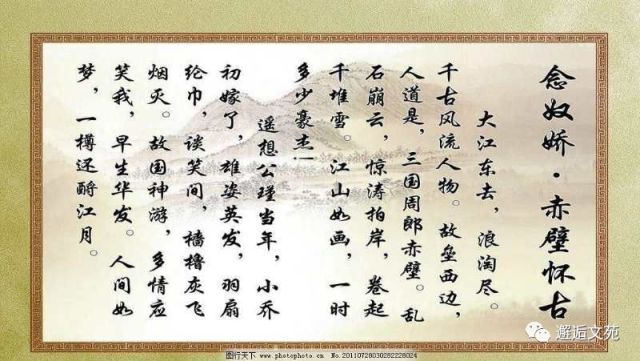 念奴娇·赤壁怀古
大江东去，浪淘尽。
千古风流人物。故垒西边，
人道是，三国周郎赤壁。乱
石崩云，惊涛拍岸，卷起
千堆雪。江山如画，一时
多少豪杰！
遥想公瑾当年，小乔
初嫁了，雄姿英发，羽扇
纶巾，谈笑间，樯橹灰飞
烟灭。故国神游，多情应
笑我，早生华发。人间如
梦，一樽还酹江月。
邂逅文苑
图行天下 www.photophoto.cn No.20110728030282228024